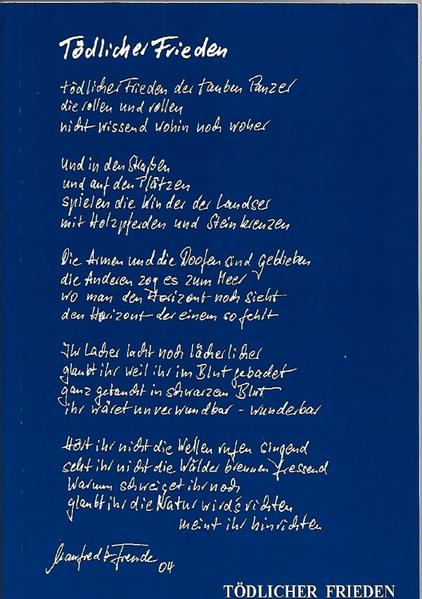 Tödlicher Frieden
tödlicher Frieden der tauben Panzer
die rollen und rollen
nicht wissend wohin noch woher
Und in den Straßen
und auf den Plätzen
spielen die Kinder der Landser
mit Holzpferden und Steinkreuzen
Die Armen und die Doofen sind geblieben
die Anderen zog es zum Meer
wo man den Horizont noch sieht
den Horizont der einem so fehlt
Ihr Lacher lacht noch lächerlicher
glaubt ihr weil ihr im Blut gebadet
ganz getaucht in schwarzem Blut
ihr wäret unverwundbar - wunderbar
Hört ihr nicht die Wellen rufen singend
seht ihr nicht die Wälder brennen fressend
Warum schweiget ihr noch
glaubt ihr die Natur wird's richten
meint ihr hinrichten
Manfred
04
TÖDLICHER FRIEDEN